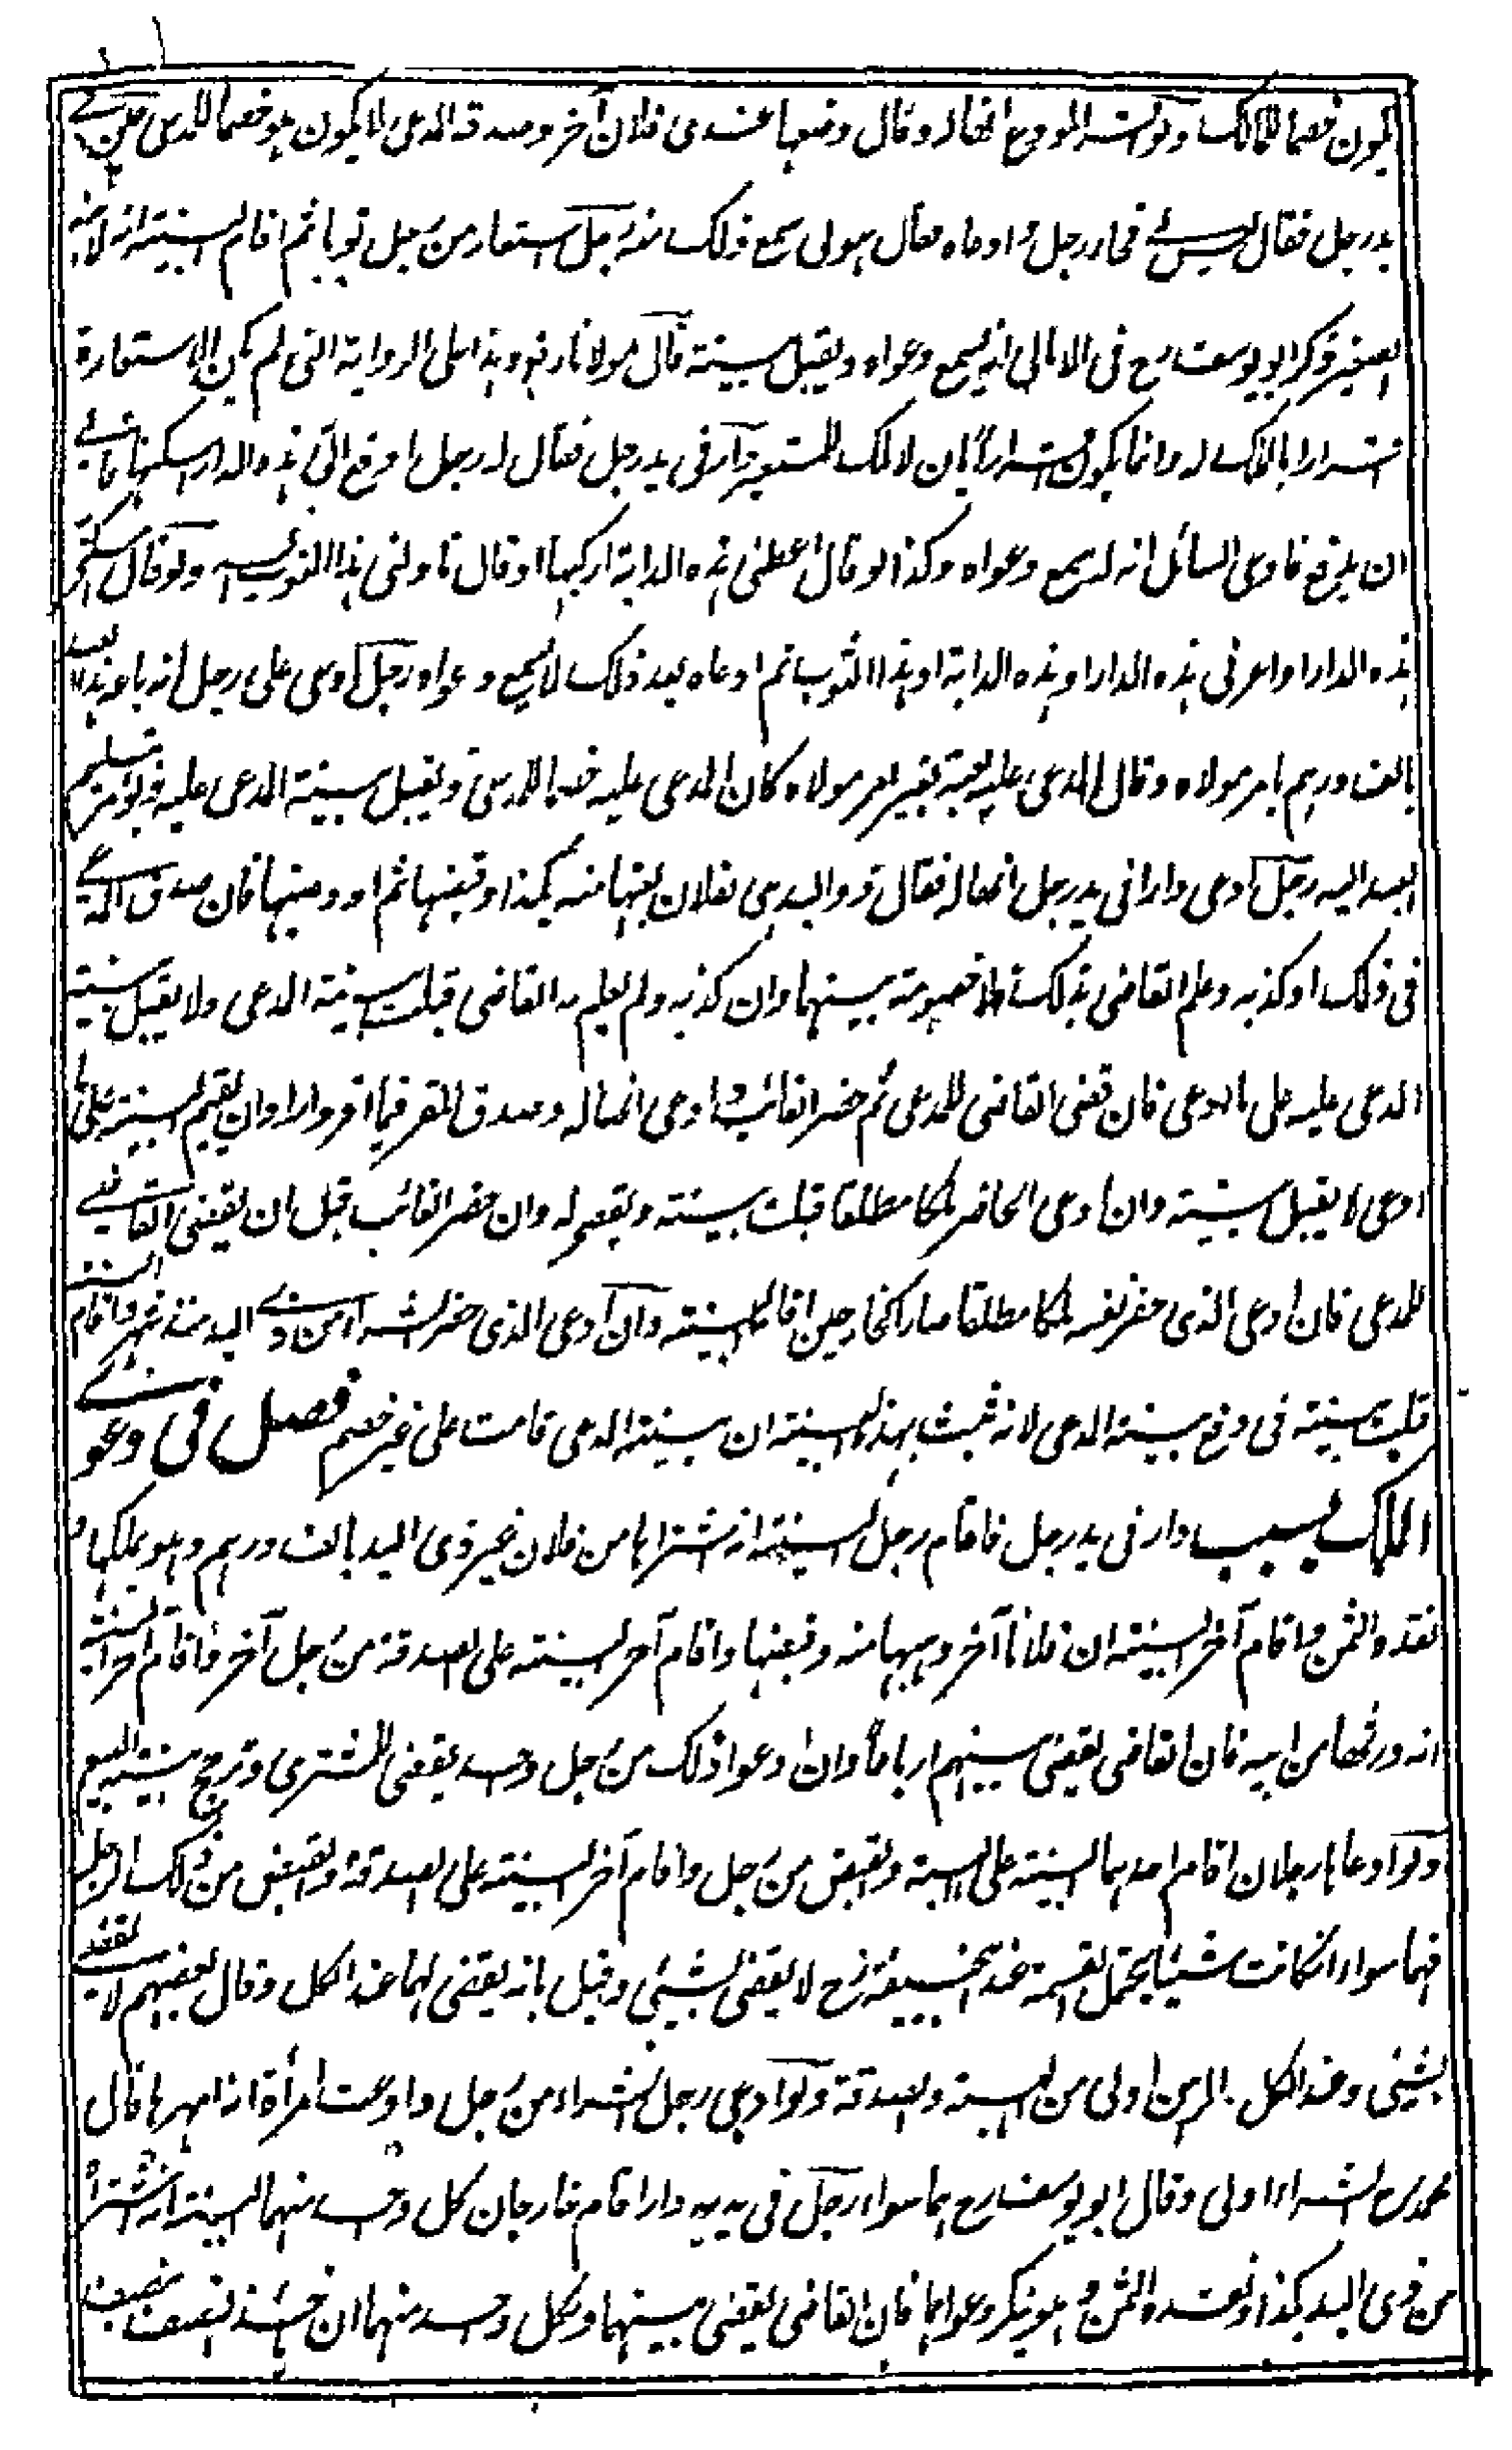 يكون خصما للمالك ولو المودع انها له وقال وضعها عندى فلان آخر وصدقه المدعى لا يكون هو خصما للمدعى عين فى
يد رجل فقال ليس لى فجاء رجل وادعاه فقال هو لى سمع ذلك منه رجل استعار من رجل ثوبا ثم اقام البينة انه لابنه
الصغير ذكر ابو يوسف رح فى الامالى انه يسمع دعواه ويقبل بينته قال مولانا رض وهذا على الرواية التى لم يكن الاستعارة
اقرارا بالملك له وانما يكون اقرارا بان لا ملك للمستعير دار فى يد رجل فقال له رجل ادفع الى هذه الدار اسكنها فابى
ان يدفع فادعى السائل انه له يسمع دعواه وكذا لو قال اعطنى هذه الدابة اركبها او قال ناولنى هذا الثوب البسه ولو قال اسكنى
هذه الدار او اعرنى هذه الدار او هذه الدابة او هذا الثوب ثم ادعاه بعد ذلك لا يسمع دعواه رجل ادعى على رجل انه باعه هذا العبد
بالف درهم بامر مولاه وقال المدعى عليه بعته بغير امر مولاه كان المدعى عليه خصما للمدعى ويقبل بينة المدعى عليه ويؤمر بتسليم
العبد اليه رجل ادعى دارا فى يد رجل انها له فقال ذو اليد هى لفلان بعتها منه بكذا وقبضها ثم اودعنيها فان صدقه المدعى
فى ذلك او كذبه وعلم القاضى بذلك فلا خصومة بينهما وان كذبه ولم يعلم به القاضى قبلت بينة المدعى ولا يقبل بينة
المدعى عليه على ما ادعى فان قضى القاضى للمدعى ثم حضر الغائب وادعى انها له وصدق المقر فيما اقر واراد ان يقيم البينة على ما
ادعى لا يقبل بينته وان ادعى الحاضر ملكا مطلقا قبلت بينته ويقضى له وان حضر الغائب قبل ان يقضى القاضى
للمدعى فان ادعى الذى حضر لنفسه ملكا مطلقا صارا كخارجين اقاما البينة وان ادعى الذى حضر الشراء من ذى اليد منذ شهر واقام البينة
قبلت بينته فى دفع بينة المدعى لانه ثبت بهذه البينة ان بينة المدعى قامت على غير خصم فصل فى دعوى
الملك بسبب دار فى يد رجل فاقام رجل البينة انه اشتراها من فلان غير ذى اليد بالف درهم وهو يملكها و
نقده الثمن واقام آخر البينة ان فلانا آخر وهبها منه وقبضها واقام آخر البينة على الصدقة من رجل آخر واقام آخر البينة
انه ورثها من ابيه فان القاضى يقضى بينهم ارباعا وان ادعوا ذلك من رجل واحد يقضى للمشترى وترجح بينة البيع
ولو ادعاها رجلان اقام احدهما البينة على الهبة والقبض من رجل واقام آخر البينة على الصدقة والقبض من ذلك الرجل
فهما سواء ان كانت شيئا يحتمل القسمة عند ابى حنيفة رح لا يقضى بشيئ وقيل بانه يقضى لهما عند الكل وقال بعضهم لا يقضى
بشيئ وعند الكل الرهن اولى من الهبة والصدقة ولو ادعى رجل الشراء من رجل وادعت امرأة انه امهرها قال
محمد رح الشراء اولى وقال ابو يوسف رح هما سواء رجل فى يديه دار اقام خارجان كل واحد منهما البينة انه اشترا
من ذى اليد بكذا ونقده الثمن وهو ينكر دعواهما فان القاضى يقضى بينهما ولكل واحد منهما ان يأخذ النصف بنصف